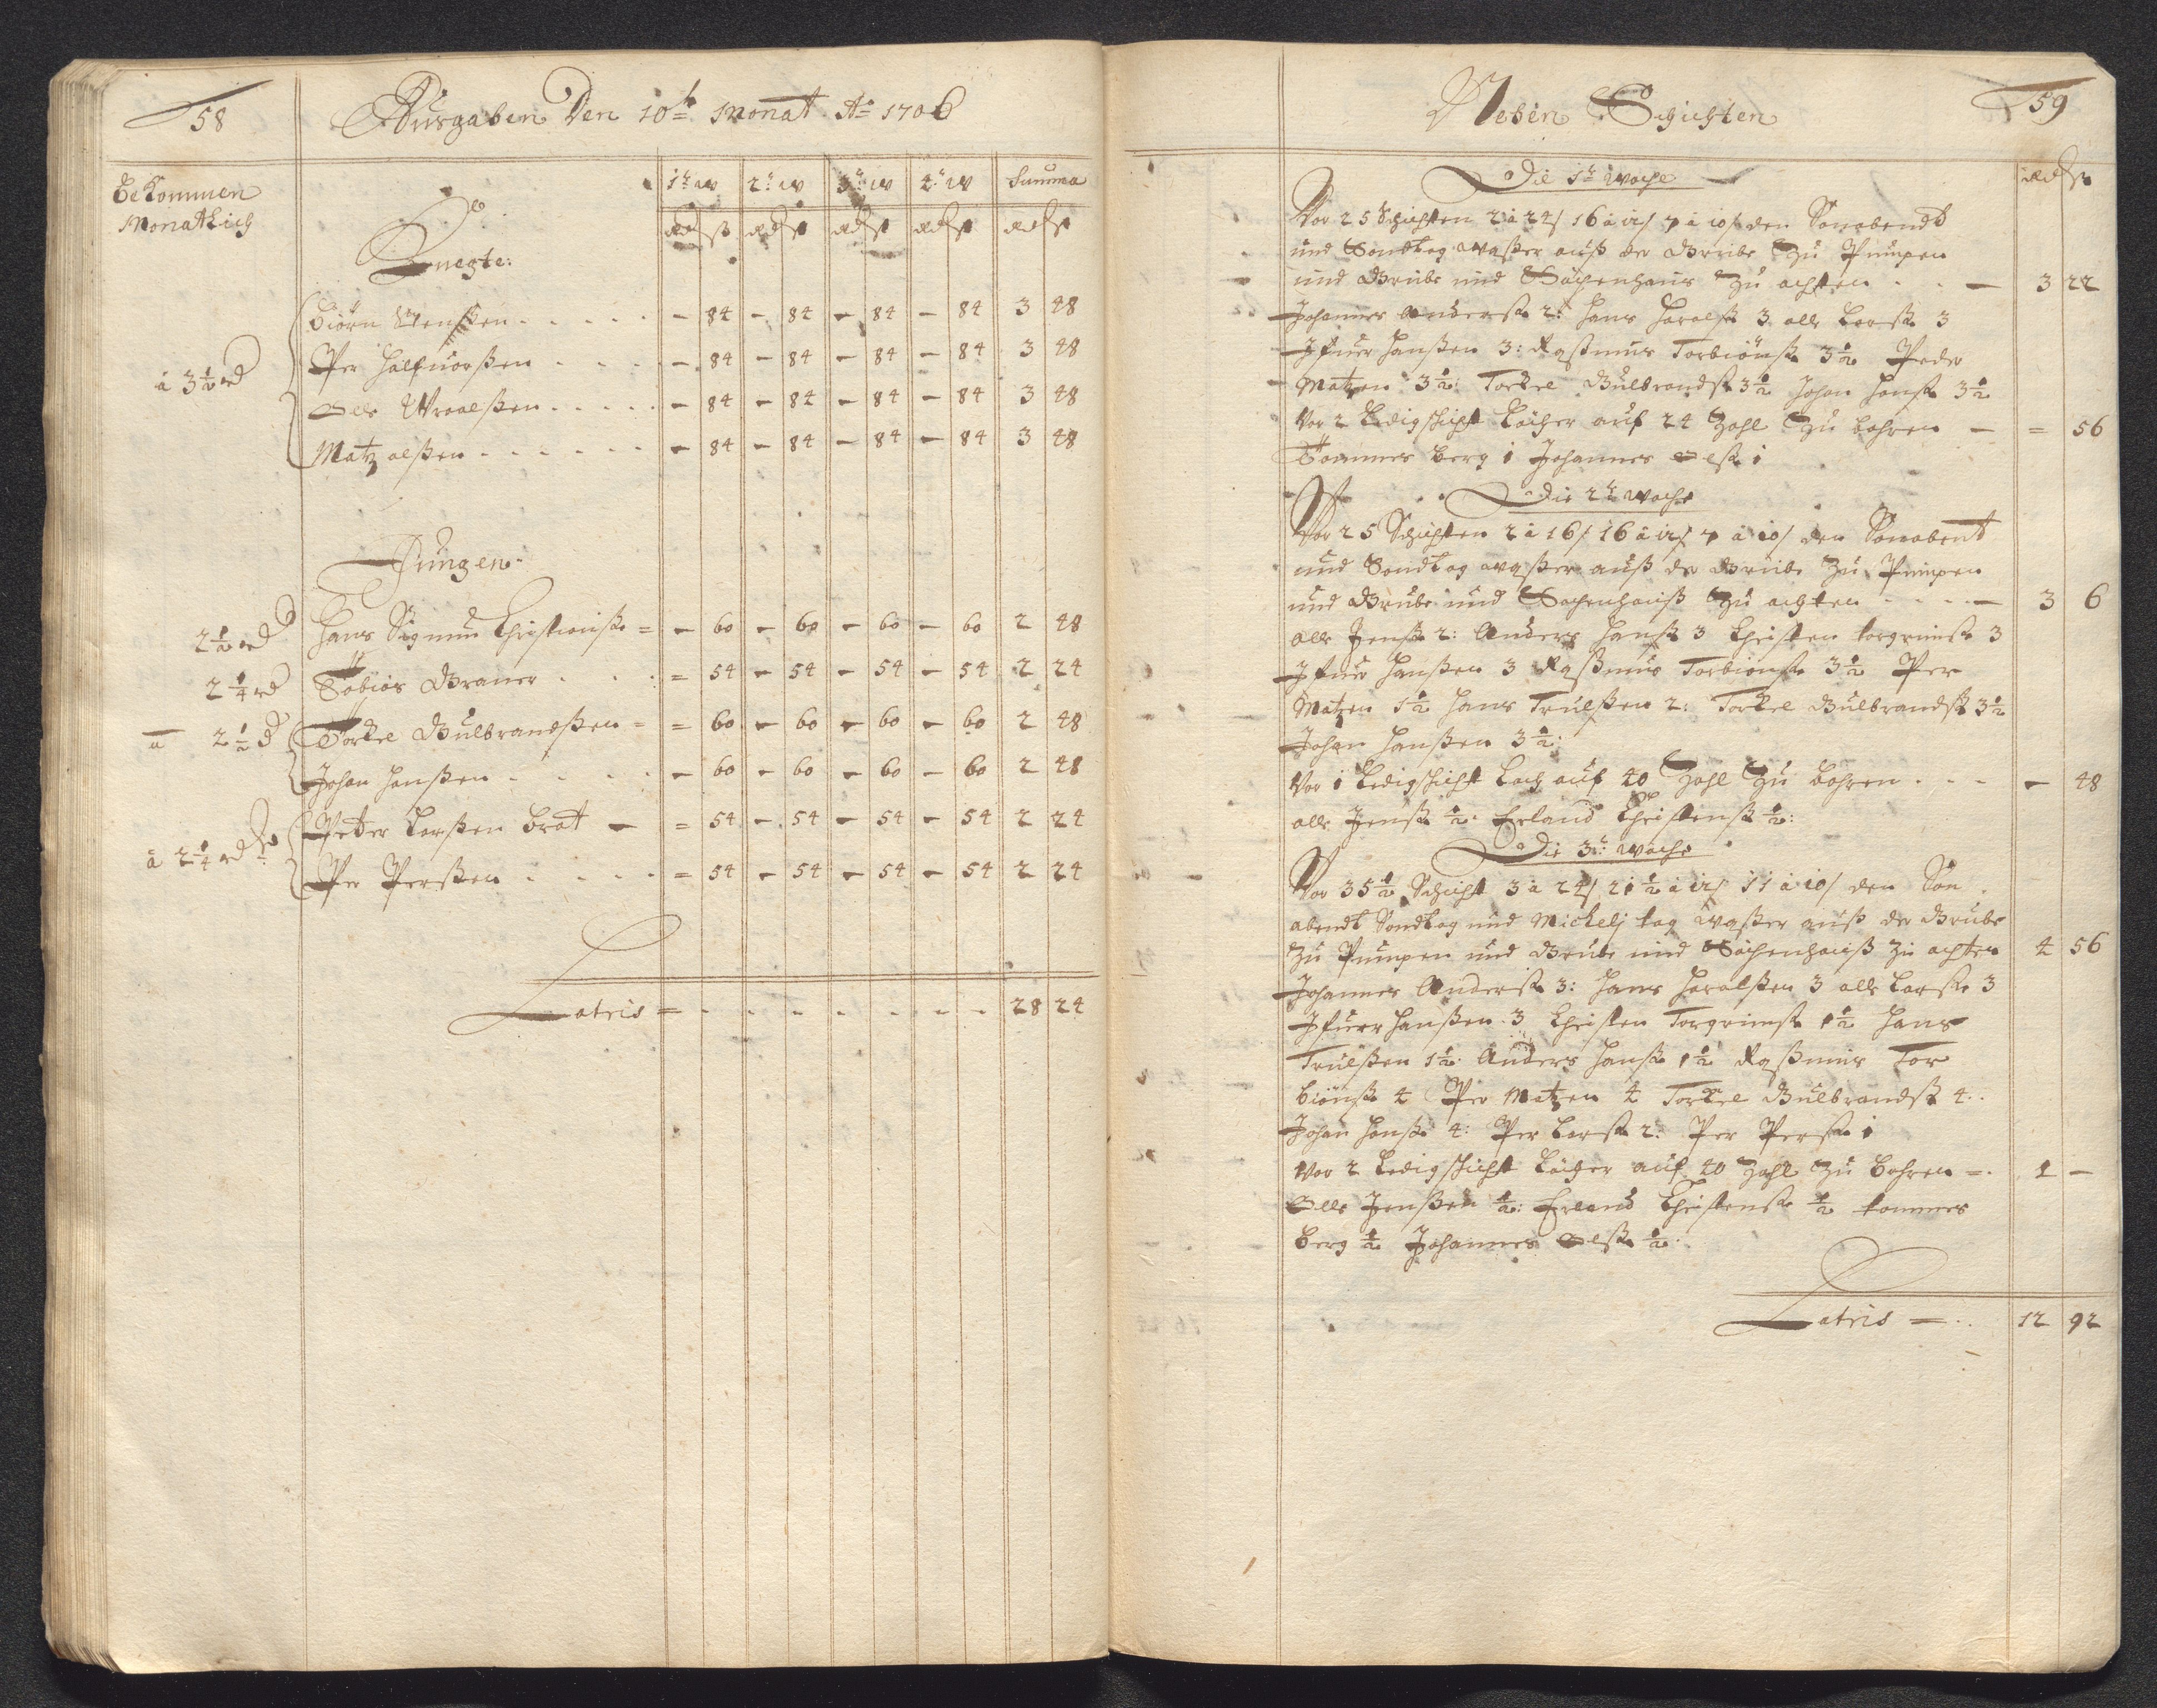 58
Ausgaben Den 10t Monat Ao 1706
Bekommen
Monatlich
1t w 2t w 3t w 4t w Summa
Rd ß Rd ß Rd ß Rd ß Rd ß
Knegte:
Biörn Jenßen - 84 - 84 - 84 - 84 3 48
à 3½ rd Per Halfuorßen - 84 - 84 - 84 - 84 3 48
Olle Wroolßen - 84 - 84 - 84 - 84 3 48
Matz olßen - 84 - 84 - 84 - 84 3 48
Jungen
2½ rd Hans Sigmun Christianß = - 60 - 60 - 60 - 60 2 48
2¼ rd Tobias Braner = 54 - 54 - 54 - 54 2 24
a 2½ d Torkel Gulbrandßen = = 60 - 60 - 60 - 60 2 48
Johan Hanßen - 60 - 60 - 60 - 60 2 48
à 2¼ rd Peter Larßen Brat = 54 - 54 - 54 - 54 2 24
Per Perßen = 54 - 54 - 54 - 54 2 24
Latris = 28 24
59
Neben Schichten
Die 1t Woche
Rd ß
Vor 25 Schichten 2 à 24/ 16 à 12/ 7 à 10/ den Sonabendt
und Sondtag waßer auß der Grube Zu Pumpen
und Grube und Sachenhaus Zu achten - 3 22
Johannes Anderß 2: Hans Haralß 3 olle Larß 3
Ifuer Hanßen 3: Raßmus Torbiönß 3½ Peder
Matzen 3½: Torkel Gulbrandß 3½ Johan Hanß 3½
Vor 2 Ledigschicht Löcher auf 24 Zohl Zu bohren - = 56
Tommes Berg 1 Johannes Olß 1
Die 2t Woche
Vor 25 Schichten 2 à 16/ 16 à 12/ 7 à 10/ den Sonabent
und Sondtag waßer auß der Grube Zu Pumpen
und Grube und Sachenhauß Zu achten - 3 6
olle Jenß 2: Anders Hanß 3 Christen torgrimß 3
Ifuer Hanßen 3 Raßmus Torbiönß 3½ Per
Matzen 1½ Hans Trulßen 2: Torkel Gulbrandß 3½
Johan Hanßen 3½:
Vor 1 Ledigschicht Loch auf 40 Zohl Zu bohren - - 48
olle Jenß ½: Erland Christenß ½:
Die 3t Woche
Vor 35½ Schicht 3 à 24/ 21½ à 12/ 11 à 10/ den Son
abendt Sondtag und Michelj tag waßer auß der Grube
Zu Pumpen und Grube und Sachenhauß Zu achten 4 56
Johannes Anderß 3: Hans Haralßen 3 olle Larß 3
Ifuer Hanßen 3 Christen Torgrimß 1½ Hans
Trulßen 1½ Anders Hanß 1½ Raßmus Tor
biönß 4 Per Matzen 4 Torkel Gulbrandß 4
Johan Hanß 4: Per Larß 2: Per Perß 1
Vor 2 Ledigschicht Löcher auf 40 Zohl Zu bohren = 1 -
Olle Jenßen ½: Erland Christenß ½ tommes
Berg ½ Johannes Olß ½
Latris = 12 92